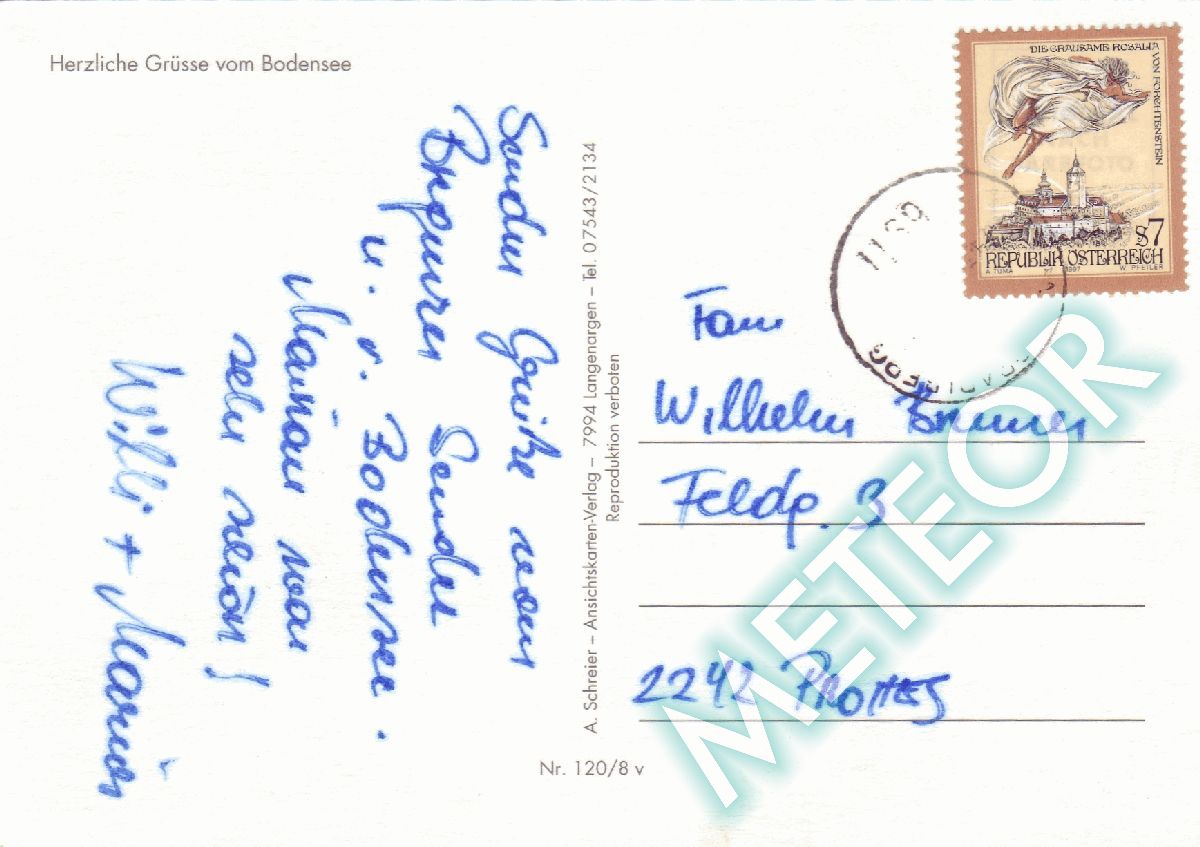 Herzliche Grüsse vom Bodensee
DIE GRAUSAME ROSALIA
VON FORCHTENSTEIN
S7
REPUBLIK ÖSTERREICH
A. TUMA 1997 W. PFEILER
Senden Grüße vom
u. v. Bodensee.
Mainau war
sehr schön!
Willi +
A. Schreier – Ansichtskarten-Verlag – 7994 Langenargen – Tel. 07543/2134
Reproduktion verboten
Nr. 120/8 v
Fam
Wilhelm
Feldg. 3
2242 PROTTES
METEOR